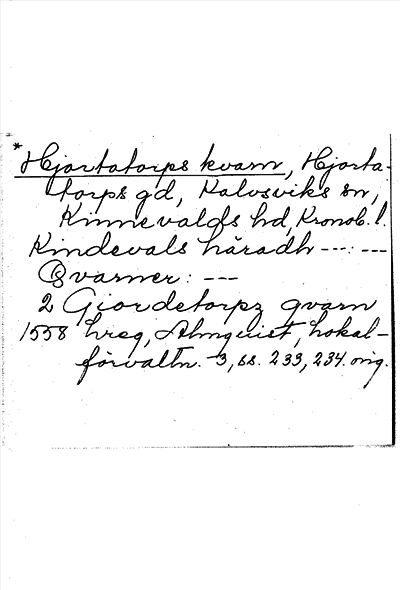 * Hjortatorps kvarn, Hjorta-
torps gd, Kalvsviks sn,
Kinnevalds hd, Kronob. l.
Kindevals häradh ---:---
Qvarner: ---
2 Giordetorpz qvarn
1558 hreg, Almquist, Lokal-
förvaltn. 3, ss. 233, 234. orig.